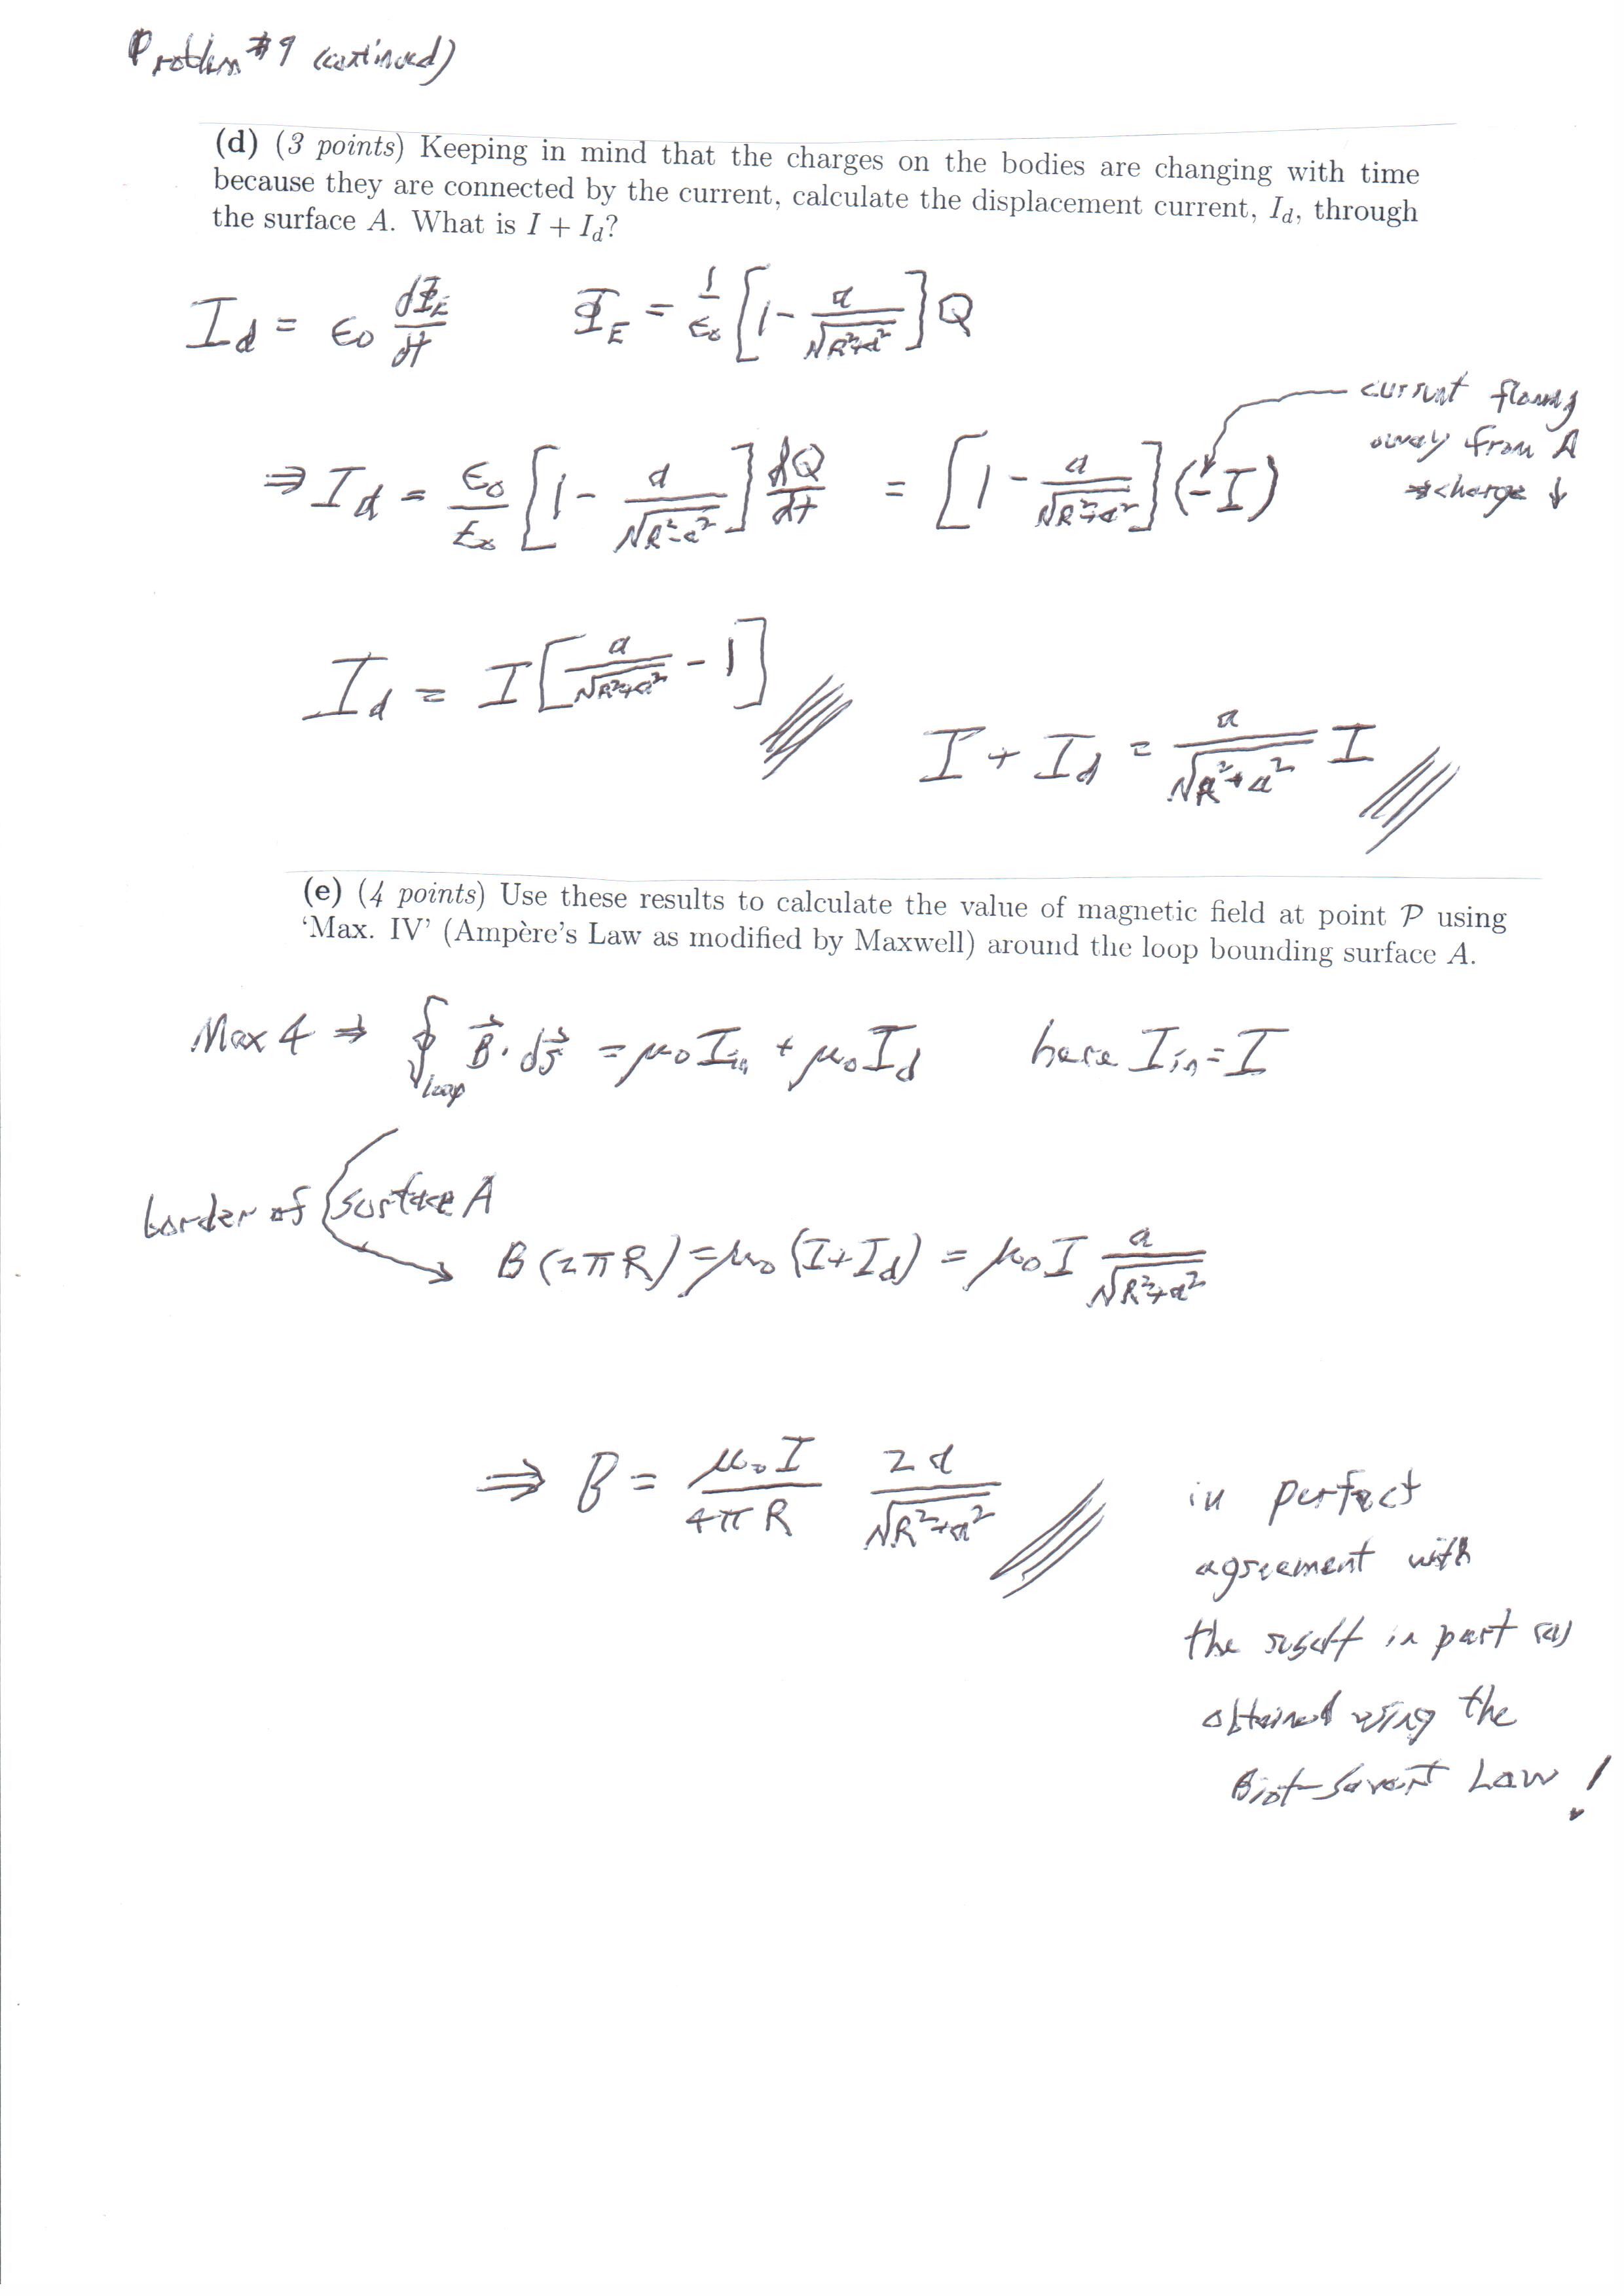 Problem #9 (continued)
(d) (3 points) Keeping in mind that the charges on the bodies are changing with time
because they are connected by the current, calculate the displacement current, I_d, through
the surface A. What is I + I_d?
I_d = ε0 dΦ_E/dt    Φ_E = 1/ε0 [1 - a/√(R²+a²)] Q
current flowing
away from A
⇒ charge ↓
⇒ I_d = ε0/ε0 [1 - a/√(R²-a²)] dQ/dt = [1 - a/√(R²+a²)] (-I)
I_d = I [a/√(R²+a²) - 1]
I + I_d = a/√(R²+a²) I
(e) (4 points) Use these results to calculate the value of magnetic field at point P using
‘Max. IV’ (Ampère’s Law as modified by Maxwell) around the loop bounding surface A.
Max 4 ⇒ ∮_loop B⃗·ds⃗ = μ0 I_in + μ0 I_d    here I_in = I
border of surface A
B(2πR) = μ0 (I+I_d) = μ0 I a/√(R²+a²)
⇒ B = μ0 I/4πR 2a/√(R²+a²)
in perfect
agreement with
the result in part (a)
obtained using the
Biot-Savart Law!